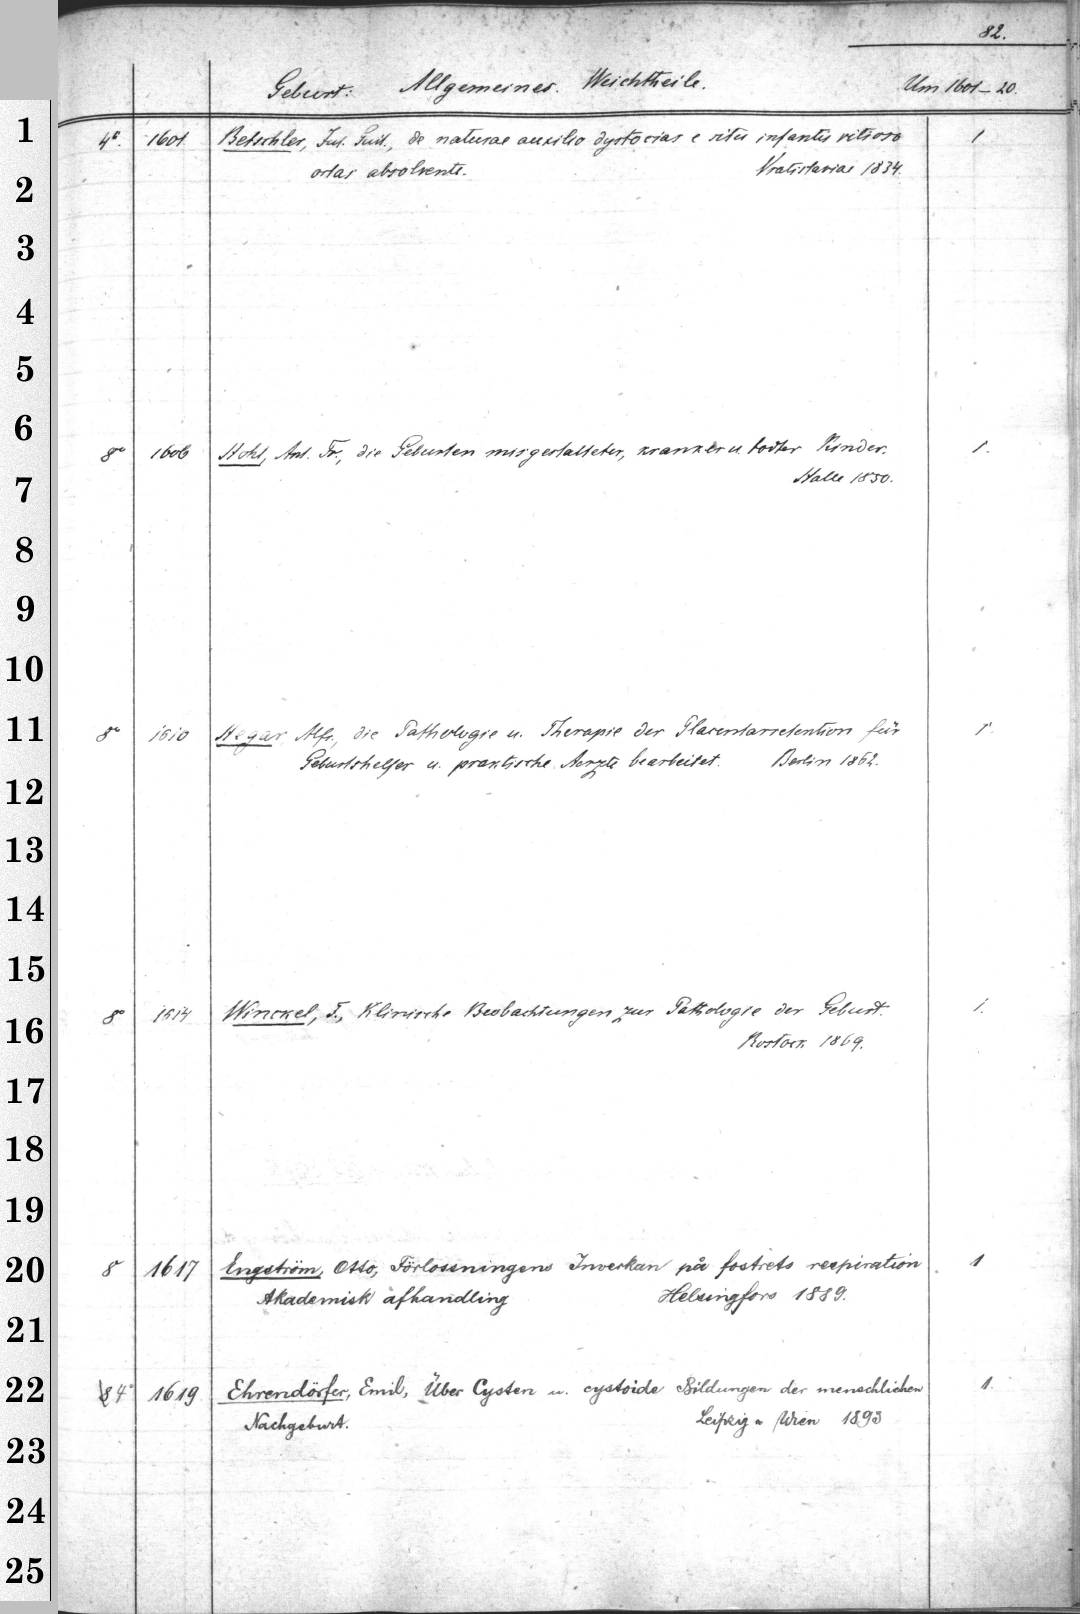 82.
Geburt: Allgemeines. Weichtheile. Um 1601–20.
1 4°. 1601 Betschler, Jul. Guil., de naturae auxilio dystocias e situ infantis vitioso 1
2 ortas absolvente. Vratislaviae 1834.
3
4
5
6 8° 1606 Hohl, Ant. Fr., die Geburten missgestalteter, kranker u. todter Kinder. 1.
7 Halle 1850.
8
9
10
11 8° 1610 Hegar Alfr., die Pathologie u. Therapie der Placentarretention für 1
12 Geburtshelfer u. praktische Aerzte bearbeitet. Berlin 1862.
13
14
15
16 8° 1614 Winckel, F., Klinische Beobachtungen zur Pathologie der Geburt. 1.
Rostock 1869.
17
18
19
20 8 1617 Engström, Otto, Förlossningens Inverkan på fostrets respiration 1
Akademisk afhandling Helsingfors 1889.
21
22 4° 1619 Ehrendörfer, Emil, Über Cysten u. cystoide Bildungen der menschlichen 1.
Nachgeburt. Leipzig u Wien 1893
23
24
25